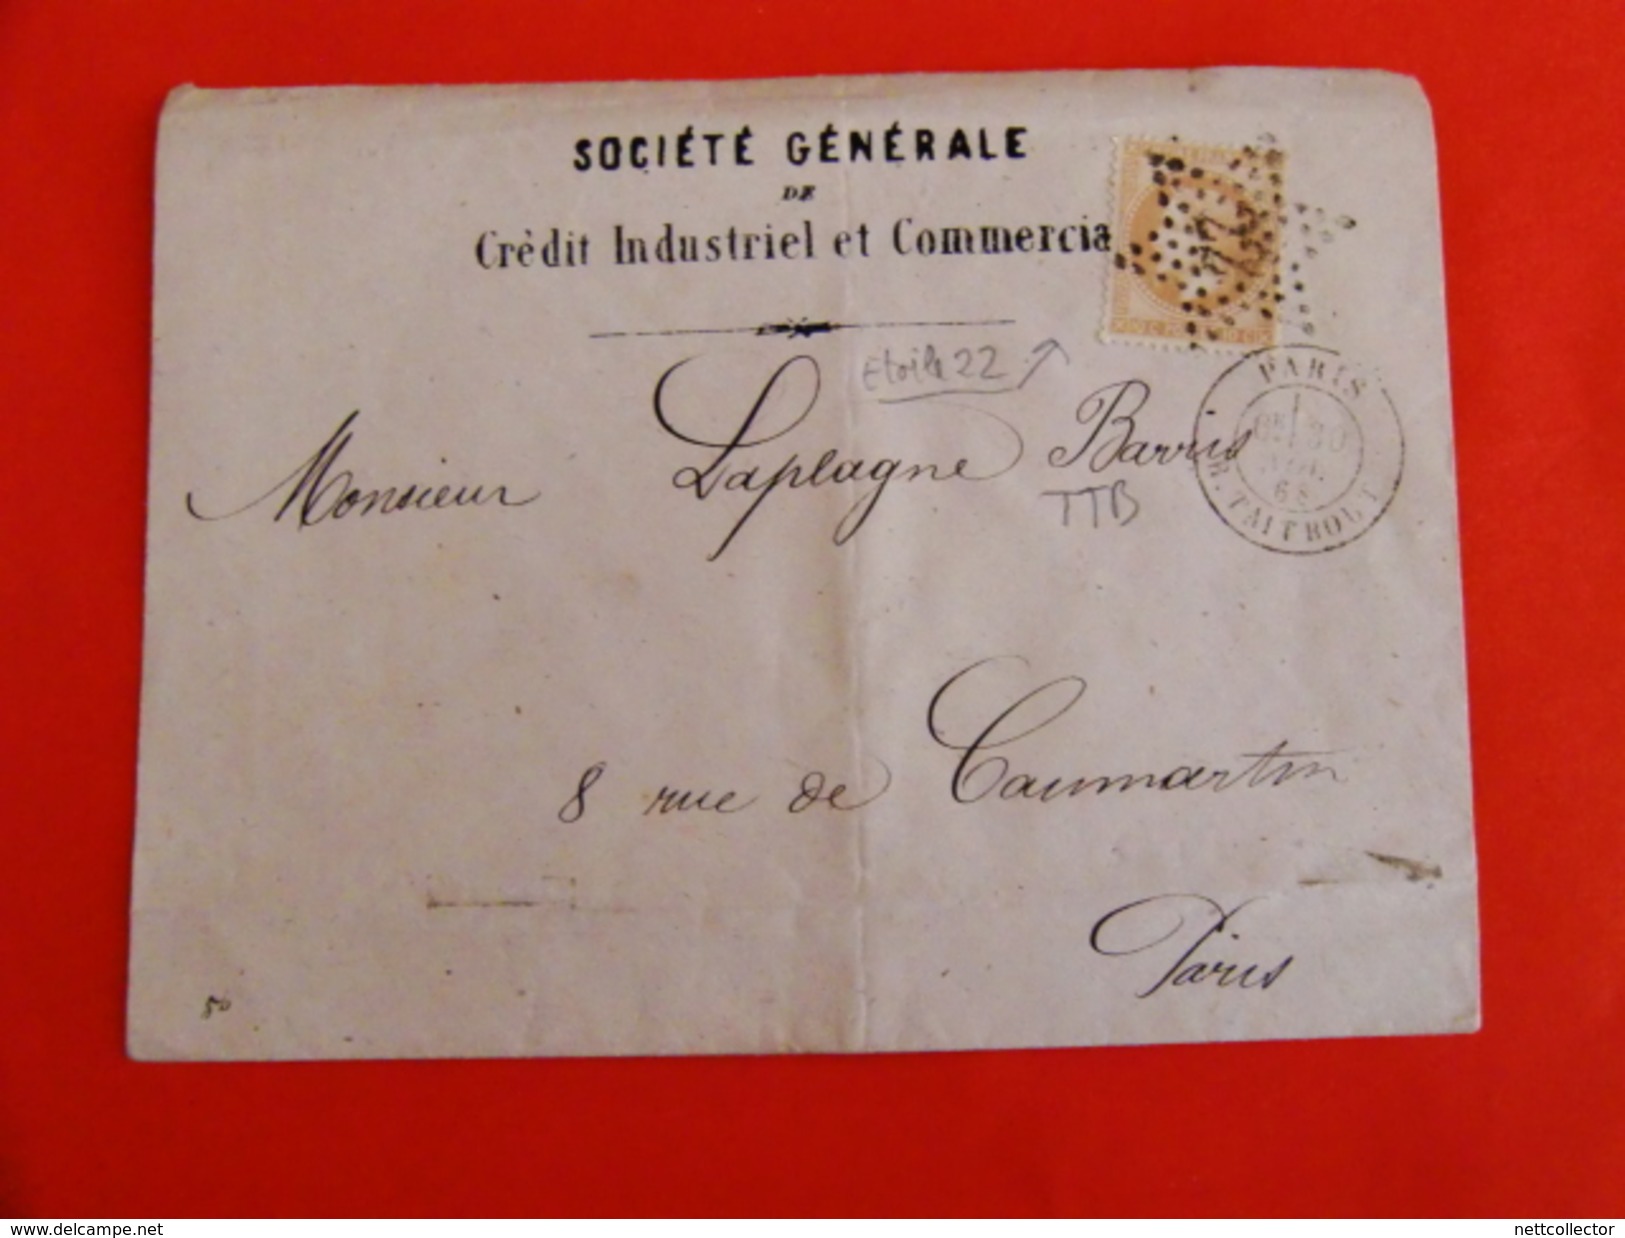 SOCIÉTÉ GÉNÉRALE
DE
Crédit Industriel et Commercia
22
Etoile 22
PARIS
30
68
R. TAITBOUT
Monsieur Laplagne Barris
TTB
8 rue de Caumartin
Paris
50
www.delcampe.net
nettcollector